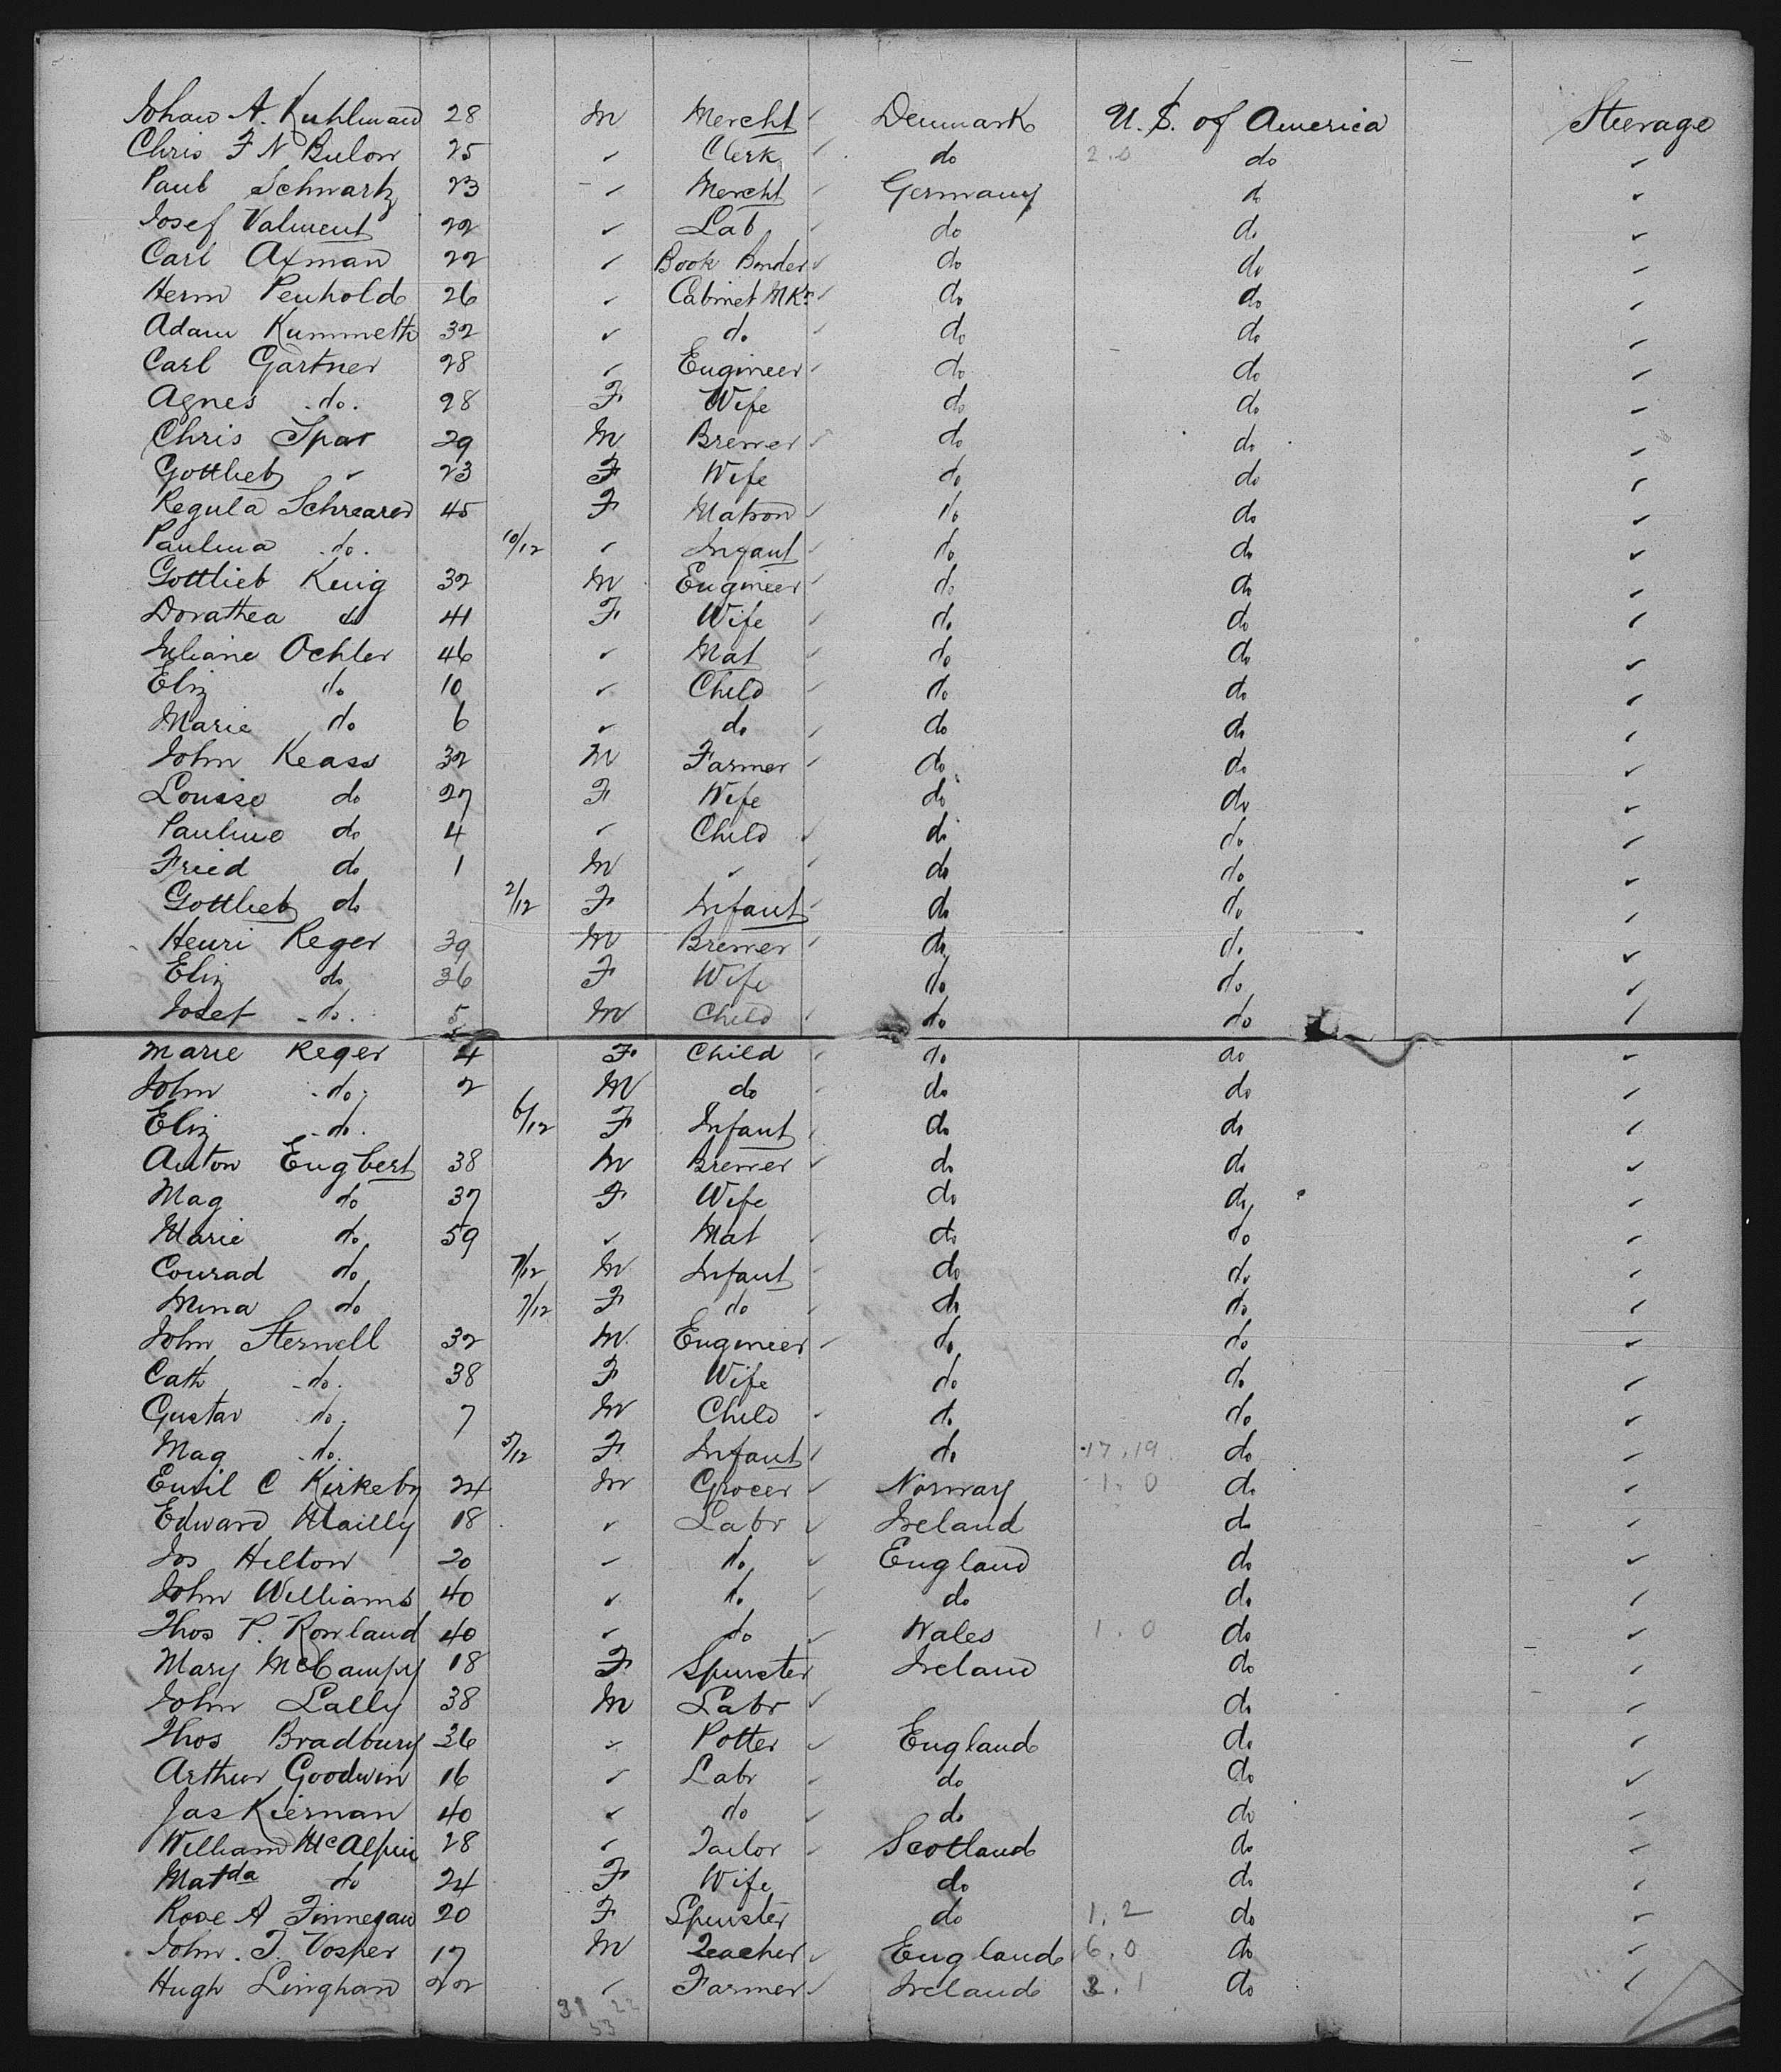 Johan A. Kuhlmand 28 M Mercht ✓ Denmark U.S. of America Steerage
Chris F N Bulow 25 ✓ Clerk ✓ do 2.0 do ✓
Paul Schwartz 23 ✓ Mercht ✓ Germany do ✓
Josef Valment 22 ✓ Lab ✓ do do ✓
Carl Axman 22 ✓ Book Binder ✓ do do ✓
Herm Penhold 26 ✓ Cabinet Mkr ✓ do do ✓
Adam Kummeth 32 ✓ do ✓ do do ✓
Carl Gartner 28 ✓ Engineer ✓ do do ✓
Agnes do. 28 F Wife do do ✓
Chris Spar 29 M Brewer ✓ do do ✓
Gottlieb ✓ 23 F Wife do do ✓
Regula Schrearer 45 F Matron ✓ do do ✓
Paulina do. 10/12 ✓ Infant ✓ do do ✓
Gottlieb Kuig 32 M Engineer ✓ do do ✓
Dorathea do 41 F Wife ✓ do do ✓
Juliane Ochler 46 ✓ Mat ✓ do do ✓
Eliz do 10 ✓ Child ✓ do do ✓
Marie do 6 ✓ do ✓ do do ✓
John Keass 32 M Farmer ✓ do do ✓
Louise do 27 F Wife do do ✓
Pauline do 4 ✓ Child ✓ do do ✓
Fried do 1 M ✓ ✓ do do ✓
Gottlieb do 2/12 F Infant ✓ do do ✓
Henri Reger 39 M Brewer ✓ do do ✓
Eliz do 36 F Wife do do ✓
Josef do. 5 M Child ✓ do do ✓
Marie Reger 4 F Child ✓ do do ✓
John do. 2 M do ✓ do do ✓
Eliz do. 6/12 F Infant do do ✓
Anton Engbert 38 M Brewer ✓ do do ✓
Mag do 37 F Wife do do ✓
Marie do 59 ✓ Mat ✓ do do ✓
Conrad do 7/12 M Infant ✓ do do ✓
Mina do 7/12 F do ✓ do do ✓
John Sterwell 32 M Engineer ✓ do do ✓
Cath do. 38 F Wife do do ✓
Gustav do. 7 M Child ✓ do do ✓
Mag do. 5/12 F Infant ✓ do 17,19 do ✓
Emil C Kirkeby 24 M Grocer ✓ Norway 1.0 do ✓
Edward Mailly 18 ✓ Labr ✓ Ireland do ✓
Jos Hilton 20 ✓ do ✓ England do ✓
John Williams 40 ✓ do ✓ do do ✓
Thos P. Rowland 40 ✓ do ✓ Wales 1.0 do ✓
Mary McCampy 18 F Spinster Ireland do ✓
John Lally 38 M Labr ✓ do ✓
Thos Bradbury 36 ✓ Potter ✓ England do ✓
Arthur Goodwin 16 ✓ Labr ✓ do do ✓
Jas Kiernan 40 ✓ do ✓ do do ✓
William McAlpin 28 ✓ Tailor ✓ Scotland do ✓
Matda do 24 F Wife do do ✓
Rose A Finnegan 20 F Spinster do 1,2 do ✓
John. T. Vosper 17 M Teacher ✓ England 6.0 do ✓
Hugh Linghan 22 ✓ Farmer ✓ Ireland 2.1 do ✓
31 22
53